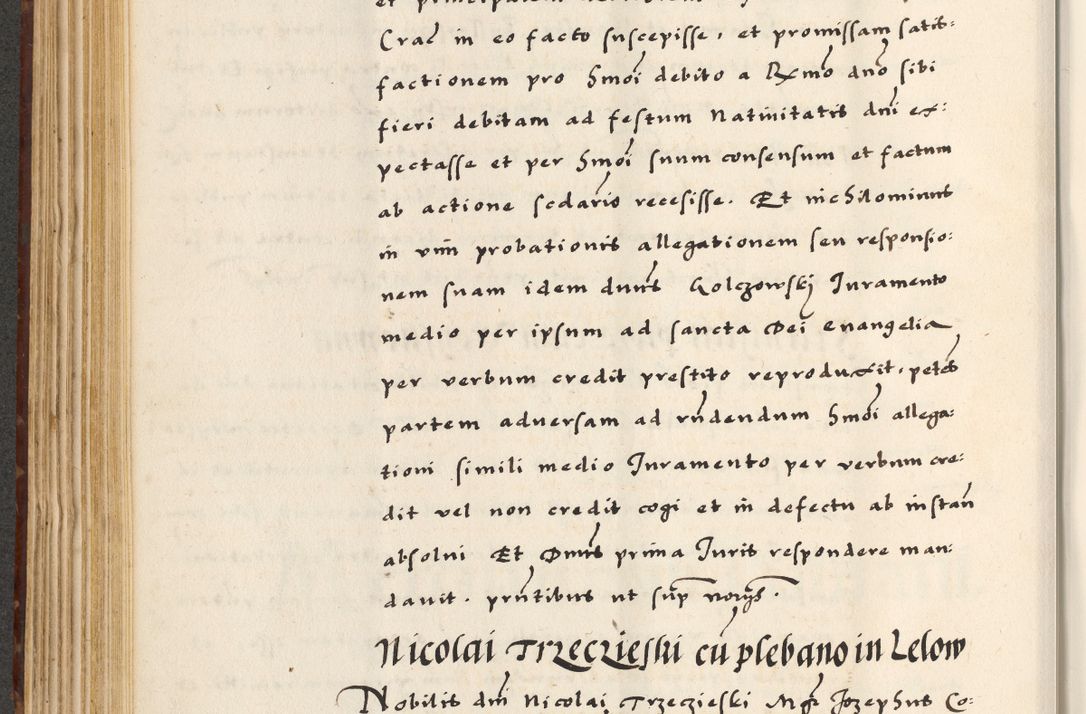 et principalem
Crac̄ in eo facto suscepisse, et promissam satis:
factionem pro Hm̄oi debito a Rx̄mo dn̄o sibi
fieri debitam ad festum Natiuitatis dn̄i ex:
pectasse et per Hm̄oi suum consensum et factum
ab actione sedario recesisse. Et nichilominus
in vim probationis allegationem seu responsio:
nem suam idem dn̄us Golczowskj Juramento
medio per ipsum ad sancta Dei euangelia
per verbum credit prestito reproduxit, petēs
partem aduersam ad rn̄dendum Hm̄oi allega:
tioni simili medio Juramento per verbum cre:
dit vel non credit cogi et in defectu ab instan̄
absolui Et Dn̄us prima Juris respondere man:
dauit. prn̄tibus ut sup̄ norijs.
Nicolai Trzeczieski cū plebano in Lelow
Nobilis dn̄i Nicolaj Trzeczieski Mgr̄ Jozephus Co: